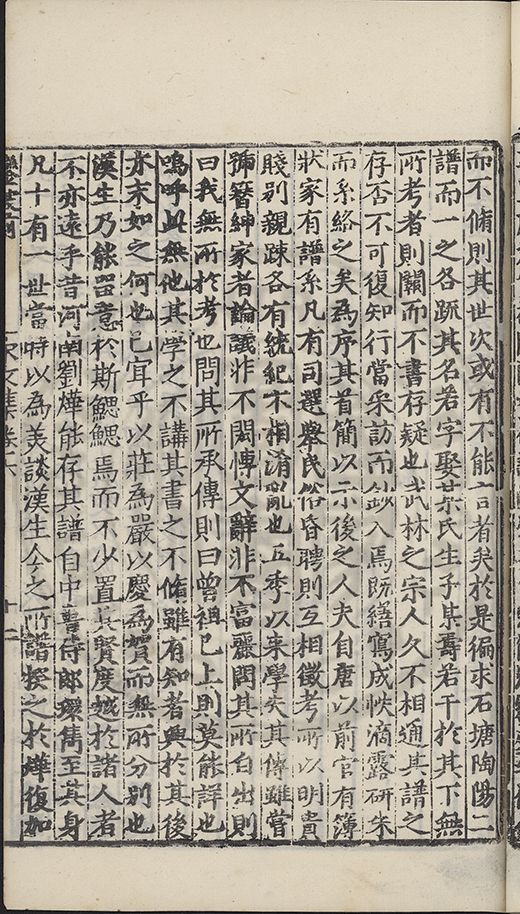 而不脩則其世次或有不能言者矣於是徧求石塘陶陽二
譜而一之各疏其名若字娶某氏生子某壽若干於其下無
所考者則闕而不書存疑也武林之宗人久不相通其譜之
存否不可復知行當采訪而鈔入焉既繕寫成帙滴露研朱
而系絡之矣為序其首簡以示後之人夫自唐以前官有簿
狀家有譜系凡有司選舉民俗昏聘則互相徵考所以明貴
賤別親疎各有統紀不相淆亂也五季以来學失其傳雖嘗
號簪紳家者論議非不閎愽文辭非不富麗問其所自出則
曰我無所於考也問其所承傳則曰曾祖已上則莫能詳也
嗚呼此無他其學之不講其書之不脩雖有知者興於其後
亦末如之何也已宜乎以莊為嚴以慶為賀而無所分別也
漢生乃能留意於斯鰓鰓焉而不少置其賢度越於諸人者
不亦遠乎昔河南劉燁能存其譜自中書侍郎環雋至其身
凡十有一世當時以為美談漢生今之所譜揆之於燁復如
文集卷六 十二